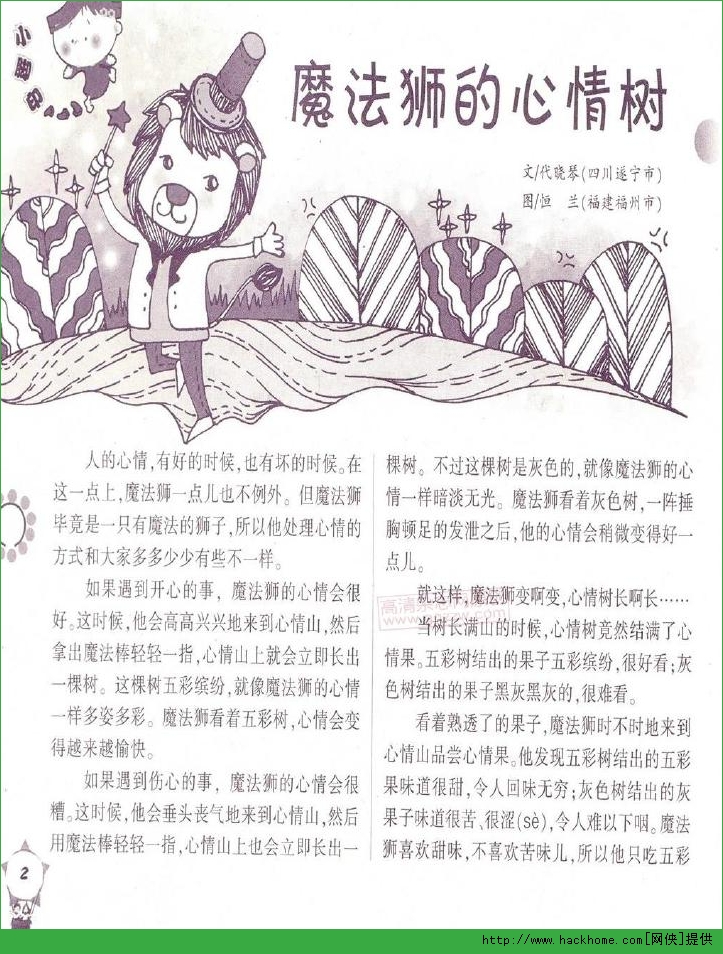 魔法狮的心情树
文/代晓琴(四川遂宁市)
图/恒 兰(福建福州市)
人的心情,有好的时候,也有坏的时候。在
这一点上,魔法狮一点儿也不例外。但魔法狮
毕竟是一只有魔法的狮子,所以他处理心情的
方式和大家多多少少有些不一样。
如果遇到开心的事,魔法狮的心情会很
好。这时候,他会高高兴兴地来到心情山,然后
拿出魔法棒轻轻一指,心情山上就会立即长出
一棵树。这棵树五彩缤纷,就像魔法狮的心情
一样多姿多彩。魔法狮看着五彩树,心情会变
得越来越愉快。
如果遇到伤心的事,魔法狮的心情会很
糟。这时候,他会垂头丧气地来到心情山,然后
用魔法棒轻轻一指,心情山上也会立即长出一
棵树。不过这棵树是灰色的,就像魔法狮的心
情一样暗淡无光。魔法狮看着灰色树,一阵捶
胸顿足的发泄之后,他的心情会稍微变得好一
点儿。
就这样,魔法狮变啊变,心情树长啊长……
当树长满山的时候,心情树竟然结满了心
情果。五彩树结出的果子五彩缤纷,很好看;灰
色树结出的果子黑灰黑灰的,很难看。
看着熟透了的果子,魔法狮时不时地来到
心情山品尝心情果。他发现五彩树结出的五彩
果味道很甜,令人回味无穷;灰色树结出的灰
果子味道很苦、很涩(sè),令人难以下咽。魔法
狮喜欢甜味,不喜欢苦味儿,所以他只吃五彩
2
http://www.hackhome.com[网侠]提供